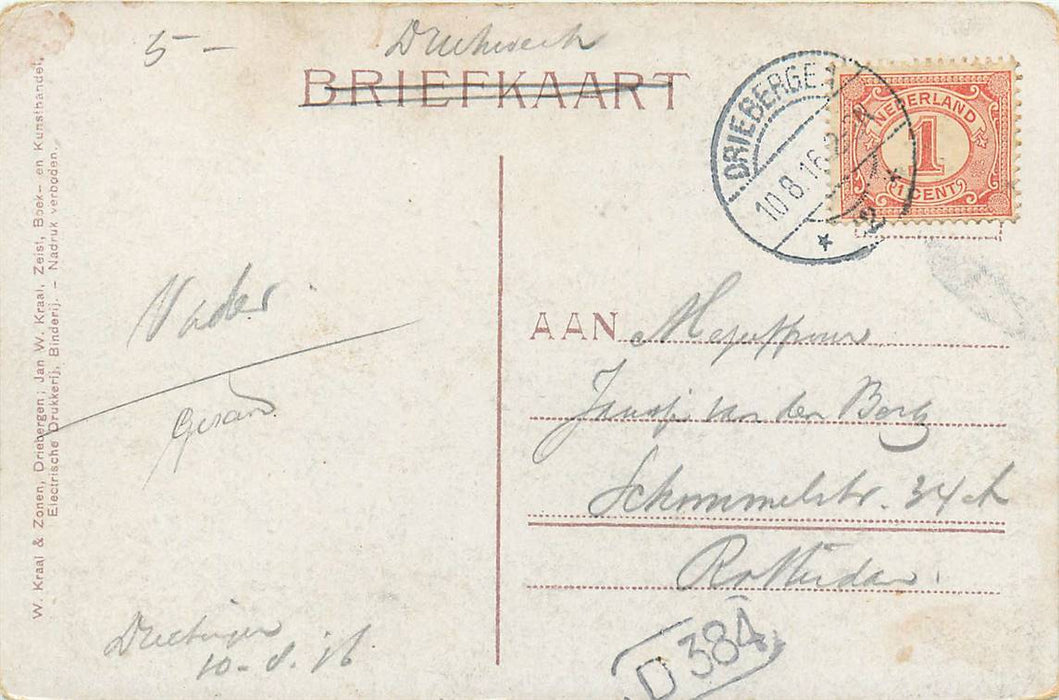 5 -
Drukwerk
BRIEFKAART
DRIEBERGEN
10.8.16.
NEDERLAND
1
1 CENT
W. Kraal & Zonen, Driebergen; Jan W. Kraal, Zeist, Boek- en Kunsthandel,
Electrische Drukkerij, Binderij. - Nadruk verboden.
Vader
AAN Mejuffrouw
Jansje van den Berg
Schommelstr. 34
Rotterdam.
Driebergen
10-8.16
D 384